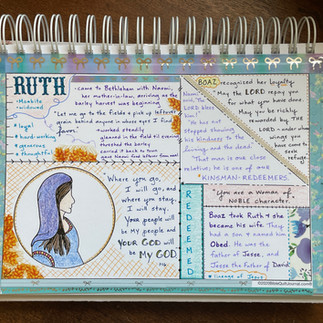 RUTH
- Moabite
- widowed
* loyal
* hard-working
* generous
* thoughtful
- came to Bethlehem with Naomi,
her mother-in-law, arriving as the
barley harvest was beginning
- "Let me go to the fields + pick up leftover
grain behind anyone in whose eyes I find
favor."
- worked steadily
- gleaned in the field til evening
- threshed the barley
- carried it back to town
- gave Naomi food leftover from meal
"Where you go,
I will go, and
where you stay,
I will stay.
Your people will
be my people and
YOUR GOD will
be MY GOD."
BOAZ recognized her loyalty.
"May the LORD repay you
for what you have done.
May you be richly
rewarded by THE
LORD under whose
wings you
have come to
seek
refuge."
LORD bless
him!"
"He has
not stopped showing
his kindness to the
living and the dead."
"That man is our close
relative; he is one of our
KINSMAN-REDEEMERS."
REDEEMED
"You are a woman of
NOBLE character."
Boaz took Ruth + she
became his wife. They
had a son + named him
Obed. He was the
father of Jesse, and
Jesse the father of David.
* lineage of Jesus